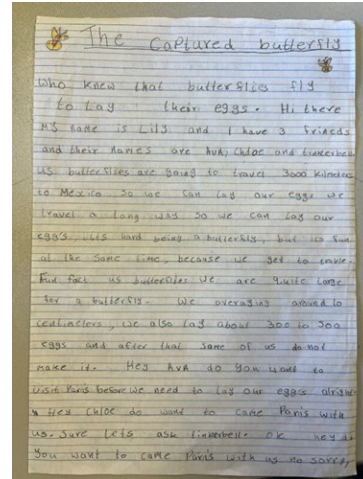 The Captured butterfly
Who knew that butterflies fly
to Lay their eggs. Hi there
My name is Lily and I have 3 friends
and their names are AvA, Chloe and tinkerbell
us butterflies are going to travel 3000 kilometres
to Mexico so we can lay our eggs we
travel a long way so we can lay our
egg's. it's hard being a butterfly, but its fun
at the same time, because we get to travle.
Fun fact us butterflies we are quite large
for a butterfly. We averaging around 10
centimeters, we also lay about 300 to 500
eggs and after that some of us do not
make it. Hey AvA do you want to
visit Paris before we need to lay our eggs alright
Hey Chloe do want to came Paris with
us. Sure lets ask tinkerbell. ok hey do
you want to came Paris with us no sorry